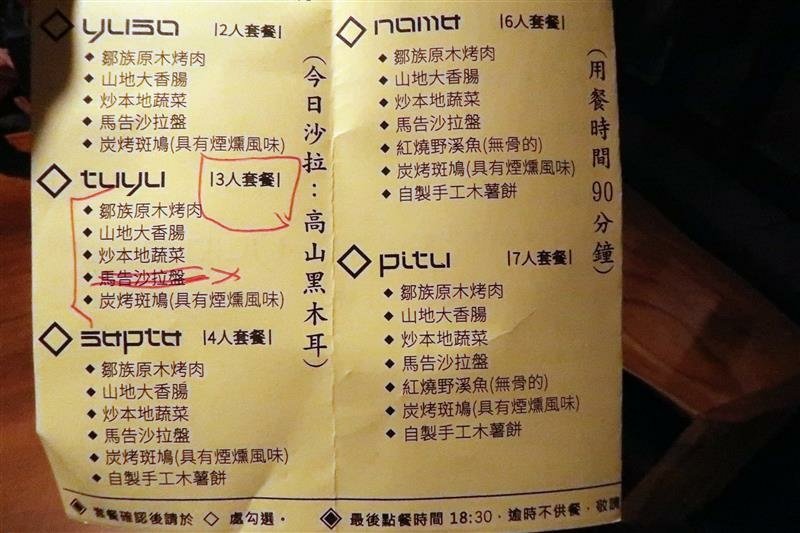 yusa |2人套餐|
鄒族原木烤肉
山地大香腸
炒本地蔬菜
馬告沙拉盤
炭烤斑鳩(具有煙燻風味)
tuyu |3人套餐|
鄒族原木烤肉
山地大香腸
炒本地蔬菜
馬告沙拉盤
炭烤斑鳩(具有煙燻風味)
sapto |4人套餐|
鄒族原木烤肉
山地大香腸
炒本地蔬菜
馬告沙拉盤
炭烤斑鳩(具有煙燻風味)
自製手工木薯餅
(今日沙拉：高山黑木耳)
noma |6人套餐|
鄒族原木烤肉
山地大香腸
炒本地蔬菜
馬告沙拉盤
紅燒野溪魚(無骨的)
炭烤斑鳩(具有煙燻風味)
自製手工木薯餅
pitu |7人套餐|
鄒族原木烤肉
山地大香腸
炒本地蔬菜
馬告沙拉盤
紅燒野溪魚(無骨的)
炭烤斑鳩(具有煙燻風味)
自製手工木薯餅
(用餐時間90分鐘)
套餐確認後請於 ◇ 處勾選。
最後點餐時間 18:30，逾時不供餐，敬請